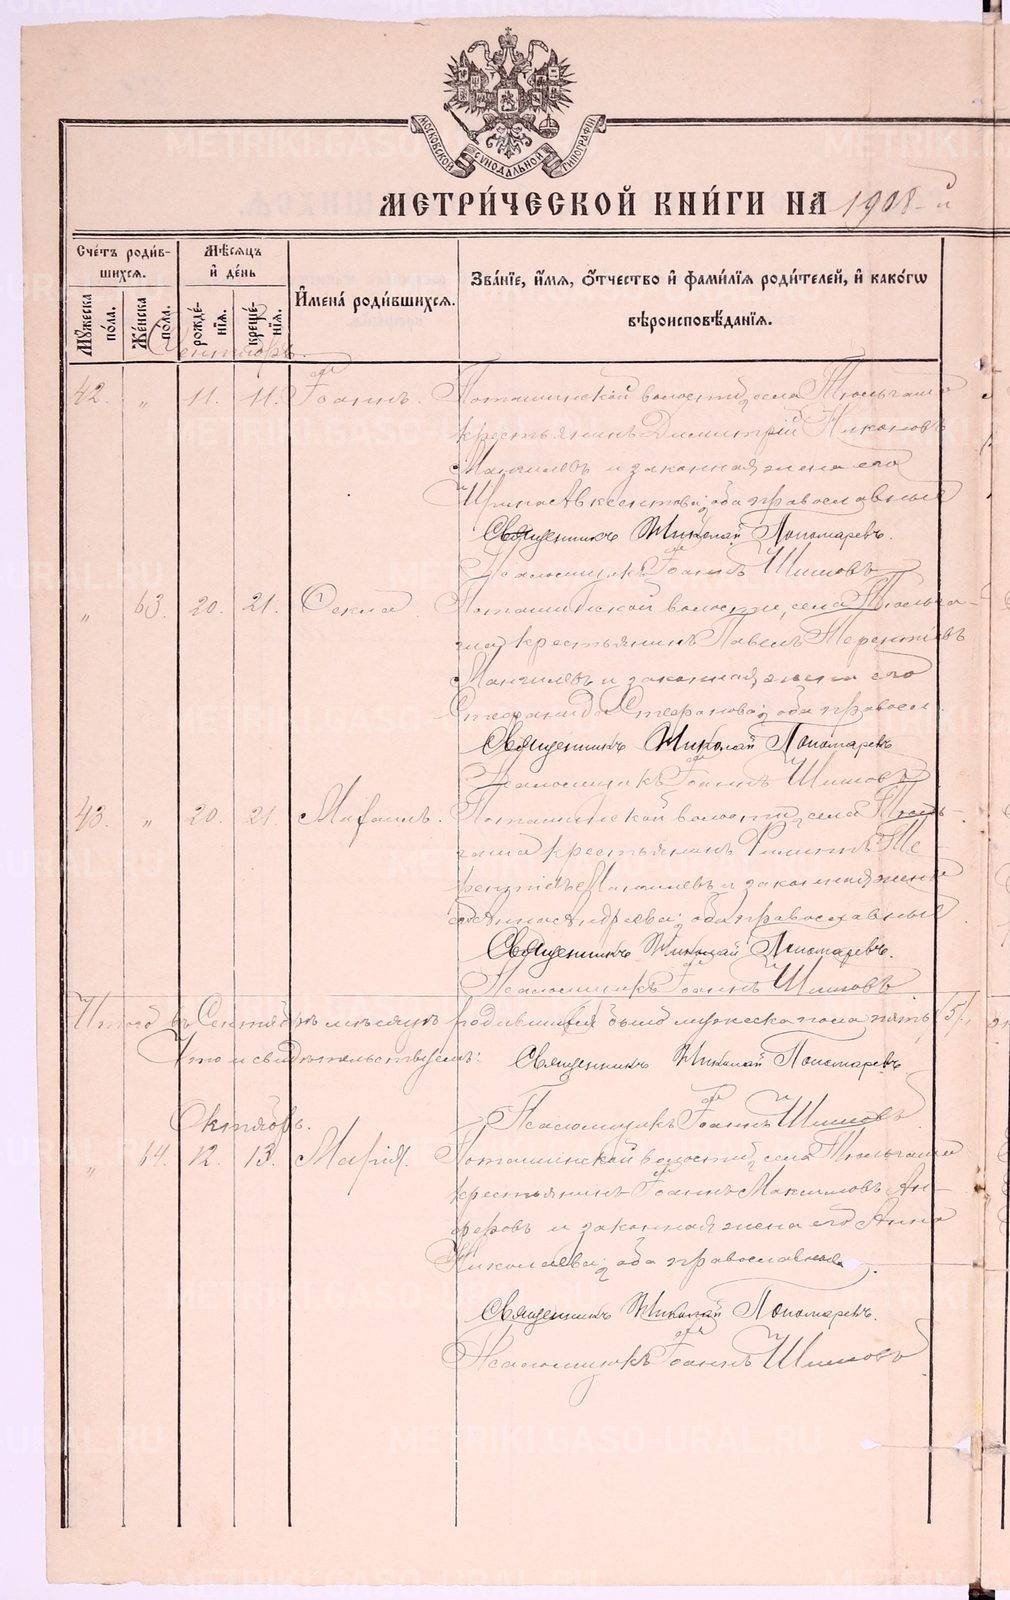 МОСКОВСКОЙ СУНОДАЛЬНОЙ ТИПОГРАФІИ
МЕТРИ́ЧЕСКОЙ КНИ́ГИ НА 1908-й
Сче́тъ роди́вшихся.
Мѣ́сяцъ и҆ де́нь
И҆мена̀ роди́вшихся.
Зва́нїе, и҆́мя, ѻ҆́тчество и҆ фами́лїя роди́телей, и҆ како́гѡ вѣроисповѣ́данїя.
Мꙋ́жеска по́ла.
Же́нска по́ла.
рожде́нїя.
креще́нїя.
Сентябрь.
42. " 11. 11. Іоаннъ. Поташинской волости, села Тюльгаша
крестьянинъ Димитрій Никоновъ
Мангилевъ и законная жена его
Ирина Авксентьева; оба православные
Священникъ Николай Пономаревъ.
Псаломщикъ Іоаннъ Шишовъ
" 63. 20. 21. Ѳекла Поташинской волости, села Тюльга-
ша крестьянинъ Павелъ Терентьевъ
Мангилевъ и законная жена его
Стефанида Стефанова; оба правосл.
Священникъ Николай Пономаревъ
Псаломщикъ Іоаннъ Шишовъ
43. " 20. 21. Михаилъ. Поташинской волости, села Тюль-
гаша крестьянинъ Филиппъ Те-
рентьевъ Мангилевъ и законная жена
его Анна Андреева; оба православные
Священникъ Николай Пономаревъ.
Псаломщикъ Іоаннъ Шишовъ
Итого въ Сентябрѣ мѣсяцѣ родившихся было мужеска пола пять (5),
Что и свидѣтельствуемъ: Священникъ Николай Пономаревъ.
Псаломщикъ Іоаннъ Шишовъ
Октябрь.
" 64. 12. 13. Марія. Поташинской волости, села Тюльгаша
крестьянинъ Іоаннъ Максимовъ Ан-
феровъ и законная жена его Анна
Николаева; оба православные.
Священникъ Николай Пономаревъ.
Псаломщикъ Іоаннъ Шишовъ
METRIKI.GASO-URAL.RU